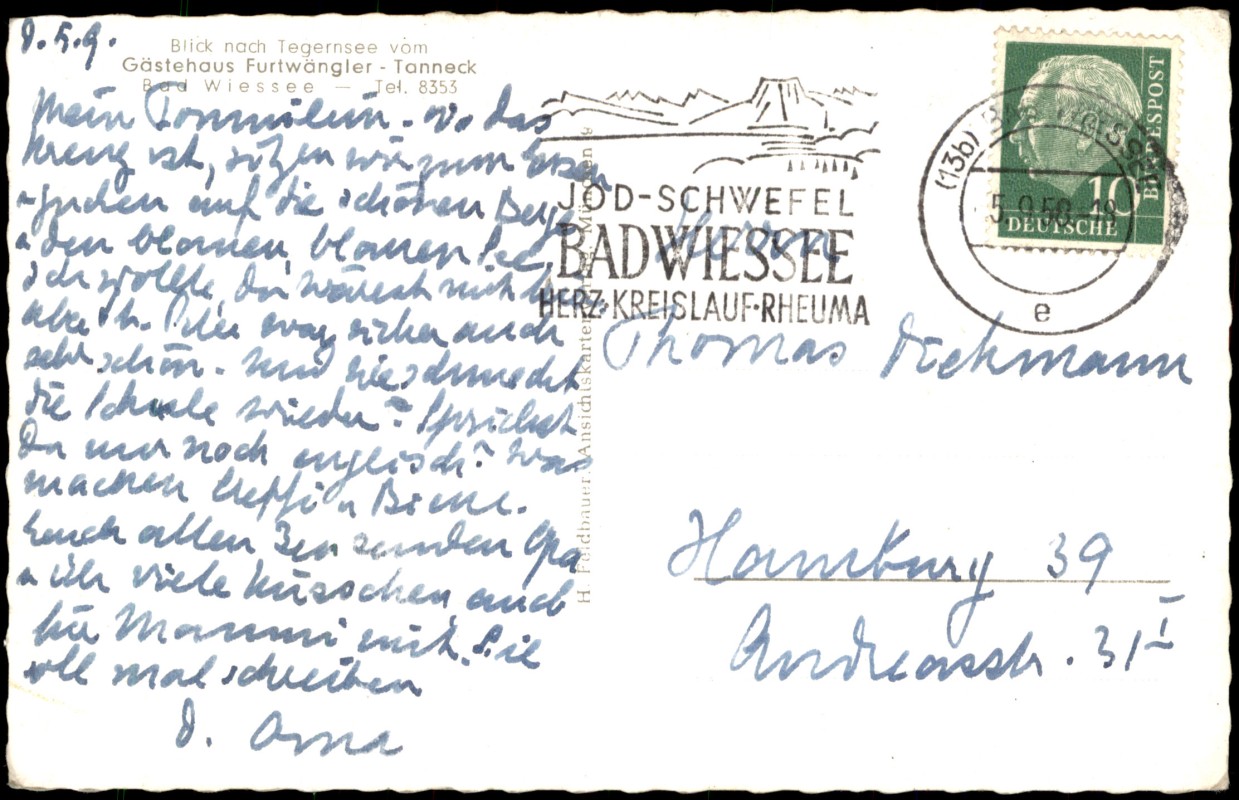 d. 5.9.
Blick nach Tegernsee vom
Gästehaus Furtwängler - Tanneck
Bad Wiessee — Tel. 8353
Mein Tommilein. Wo das
Kreuz ist, sitzen wir zum Essen
u gucken auf die schönen Berge
u den blauen, blauen See,
Ich wollte, Du wärest mit hier
aber St. Peter war sicher auch
sehr schön. Und wie schmeckt
die Schule wieder? Sprichst
Du nur noch englisch? Was
machen u Biene.
Euch allen 3en senden Opa
u ich viele Küsschen, auch
für Mammi mit. Sie
soll mal schreiben
D. Oma
H. Feldbauer, Ansichtskarten München 9
JOD-SCHWEFEL
BAD WIESSEE
HERZ·KREISLAUF·RHEUMA
(13b) BAD WIESSEE
-5.9.58.-18
e
DEUTSCHE
BUNDESPOST
10
Herrn
Thomas Dieckmann
Hamburg 39
Andreasstr. 31 I